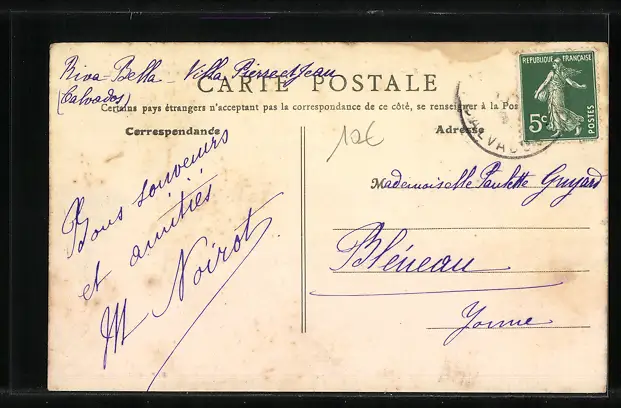 Riva-Bella - Villa Pierre et Jean
(Calvados)
CARTE POSTALE
Certains pays étrangers n'acceptant pas la correspondance de ce côté, se renseigner à la Pos
Correspondance
Adresse
10€
REPUBLIQUE FRANÇAISE
5c
POSTES
CALVADOS
Bons souvenirs
et amitiés
M Noirot
Mademoiselle Paulette Guyard
Bléneau
Yonne